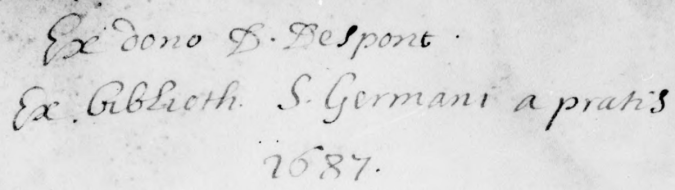 Ex dono D. Despont.
Ex biblioth. S. Germani a pratis
1687.